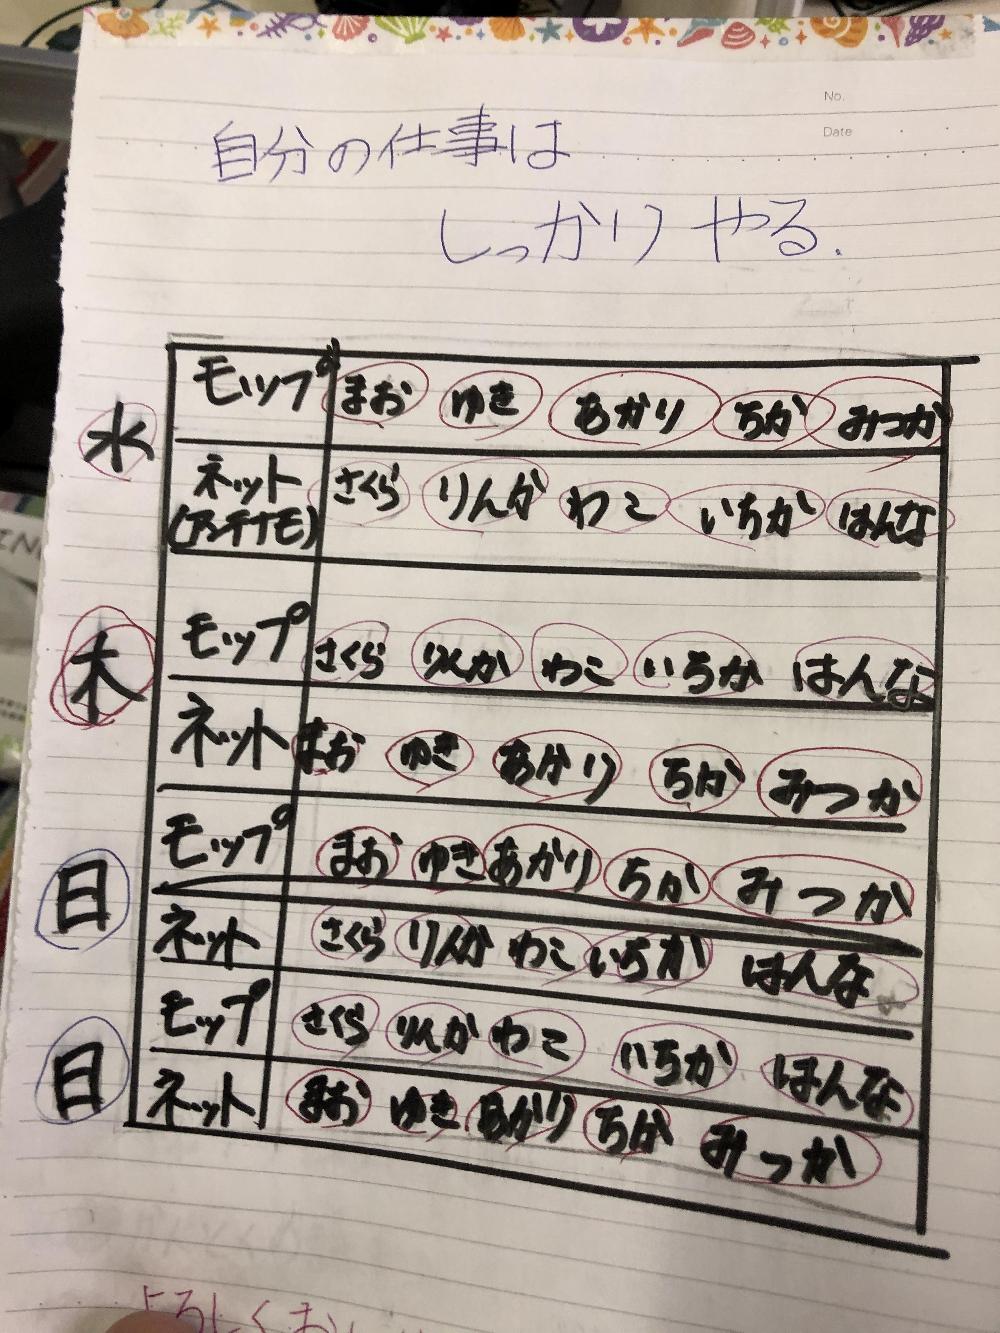 No.
Date
自分の仕事は
しっかりやる.
水
モップ まお ゆき あかり ちか みつか
ネット さくら りんか わこ いちか はんな
(アンテナモ)
木
モップ さくら りんか わこ いちか はんな
ネット まお ゆき あかり ちか みつか
日
モップ まお ゆき あかり ちか みつか
ネット さくら りんか わこ いちか はんな
日
モップ さくら りんか わこ いちか はんな
ネット まお ゆき あかり ちか みつか
よろしくお